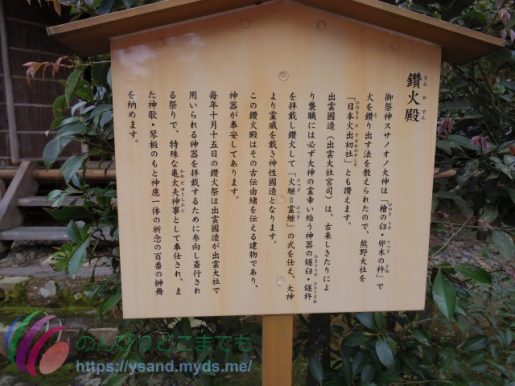 鑽火殿
さんかでん
御祭神スサノオノ大神は「檜の臼・卯木の杵」で
火を鑽り出す法を教えられたので、熊野大社を
「日本火出初社」とも讃えます。
出雲國造（出雲大社宮司）は、古来しきたりによ
り襲職には必ず大神の霊幸い給う神器の燧臼・燧杵
を拝戴し鑽火して「火継＝霊継」の式を仕え、大神
より霊威を戴き神性國造となります。
この鑽火殿はその古伝由緒を伝える建物であり、
神器が奉安してあります。
毎年十月十五日の鑽火祭は出雲國造が出雲大社で
用いられる神器を拝戴するために参向し斎行され
る祭りで、特殊な亀太夫神事として奉仕され、ま
た神歌・琴板のもと神慮一体の祈念の百番の榊舞
を納めます。
のんびりどこまでも
https://ysand.myds.me/